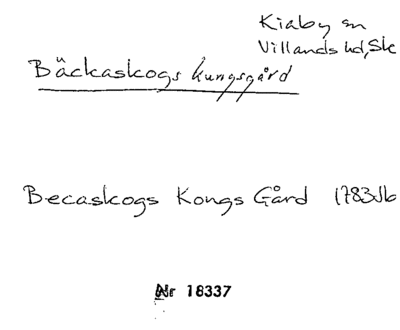 Kiaby sn
Villands hd, Sk
Bäckaskogs kungsgård
Becaskogs Kongs Gård 1783 Jb
Nr 18337